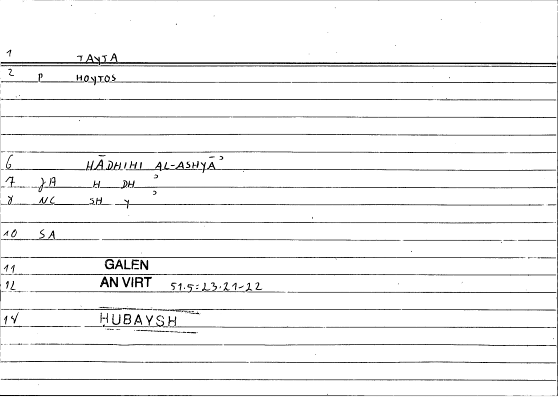 1 TAYTA
2 P HOYTOS
6 HĀDHIHI AL-ASHYĀʾ
7 JA H DH ʾ
8 NC SH Y ʾ
10 SA
11 GALEN
12 AN VIRT 51.5:23.21-22
14 ḤUBAYSH